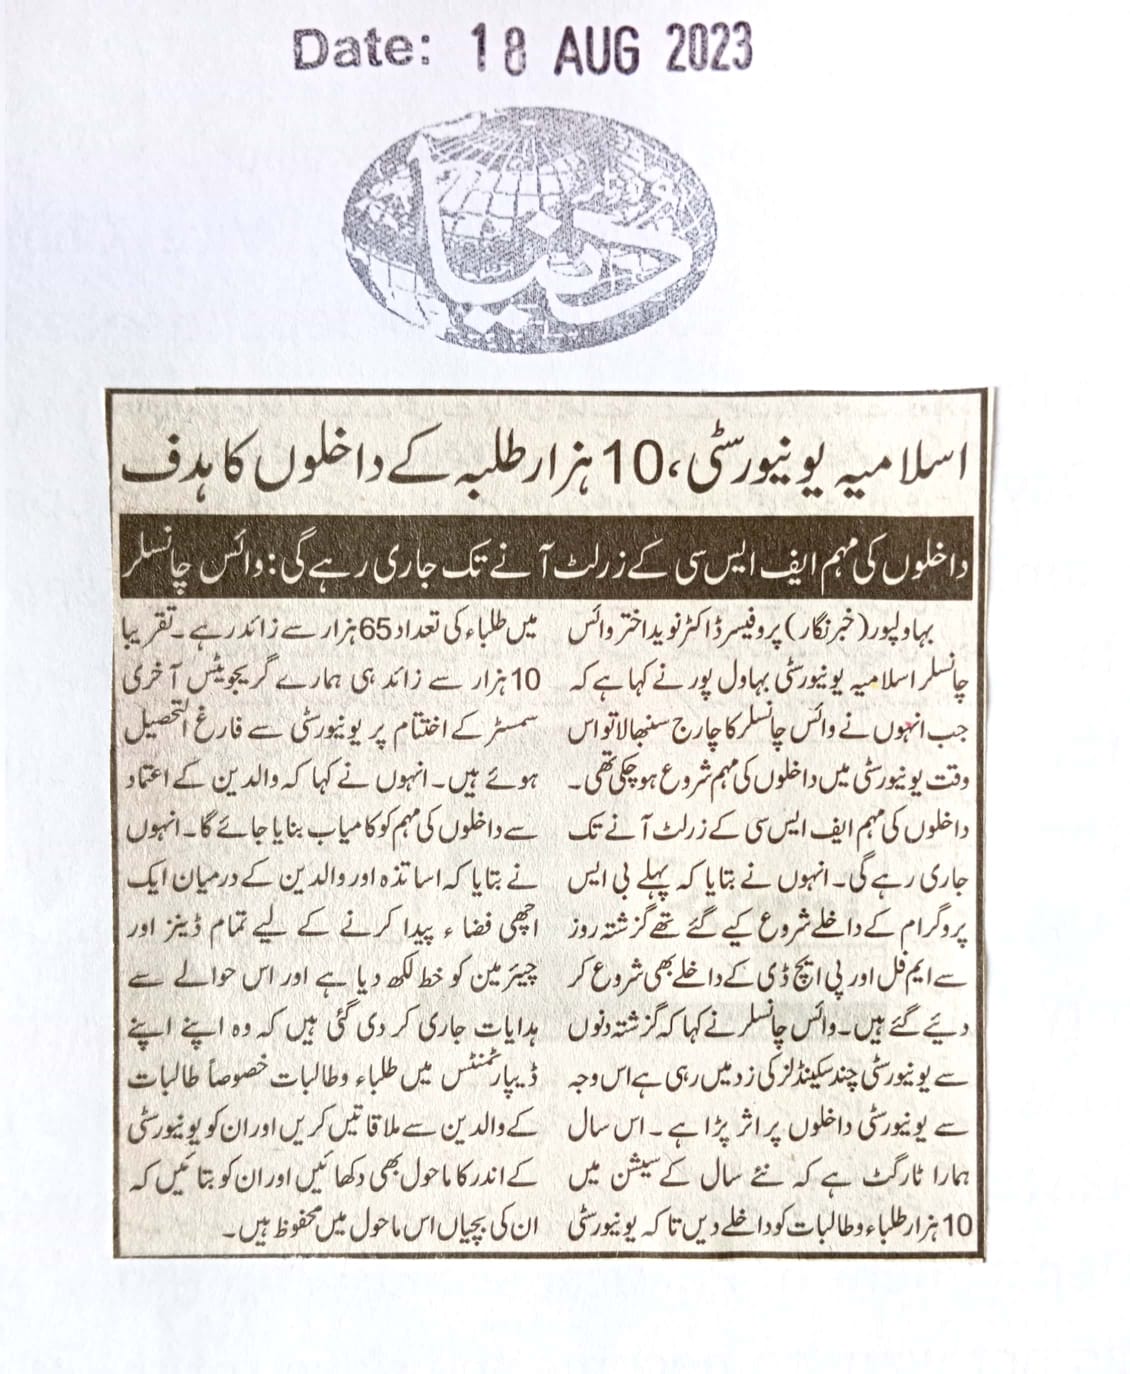 Date: 18 AUG 2023
روزنامہ
دنیا
اسلامیہ یونیورسٹی، 10 ہزار طلبہ کے داخلوں کا ہدف
داخلوں کی مہم ایف ایس سی کے زرلٹ آنے تک جاری رہے گی: وائس چانسلر
بہاولپور (خبر نگار) پروفیسر ڈاکٹر نوید اختر وائس
چانسلر اسلامیہ یونیورسٹی بہاول پور نے کہا ہے کہ
جب انہوں نے وائس چانسلر کا چارج سنبھالا تو اس
وقت یونیورسٹی میں داخلوں کی مہم شروع ہو چکی تھی۔
داخلوں کی مہم ایف ایس سی کے زرلٹ آنے تک
جاری رہے گی۔ انہوں نے بتایا کہ پہلے بی ایس
پروگرام کے داخلے شروع کیے گئے تھے گزشتہ روز
سے ایم فل اور پی ایچ �ی کے داخلے بھی شروع کر
دئیے گئے ہیں۔ وائس چانسلر نے کہا کہ گزشتہ دنوں
سے یونیورسٹی چند سکینڈلز کی زد میں رہی ہے اس وجہ
سے یونیورسٹی داخلوں پر اثر پڑا ہے۔ اس سال
ہمارا ٹارگٹ ہے کہ نئے سال کے سیشن میں
10 ہزار طلباء و طالبات کو داخلے دیں تا کہ یونیورسٹی
میں طلباء کی تعداد 65 ہزار سے زائد رہے۔ تقریبا
10 ہزار سے زائد ہی ہمارے گریجویٹس آخری
سمسٹر کے اختتام پر یونیورسٹی سے فارغ التحصیل
ہوئے ہیں۔ انہوں نے کہا کہ والدین کے اعتماد
سے داخلوں کی مہم کو کامیاب بنایا جائے گا۔ انہوں
نے بتایا کہ اساتذہ اور والدین کے درمیان ایک
اچھی فضاء پیدا کرنے کے لیے تمام ڈینز اور
چیئرمین کو خط لکھ دیا ہے اور اس حوالے سے
ہدایات جاری کر دی گئی ہیں کہ وہ اپنے اپنے
ڈیپارٹمنٹس میں طلباء و طالبات خصوصاً طالبات
کے والدین سے ملاقاتیں کریں اور ان کو یونیورسٹی
کے اندر کا ماحول بھی دکھائیں اور ان کو بتائیں کہ
ان کی بچیاں اس ماحول میں محفوظ ہیں۔